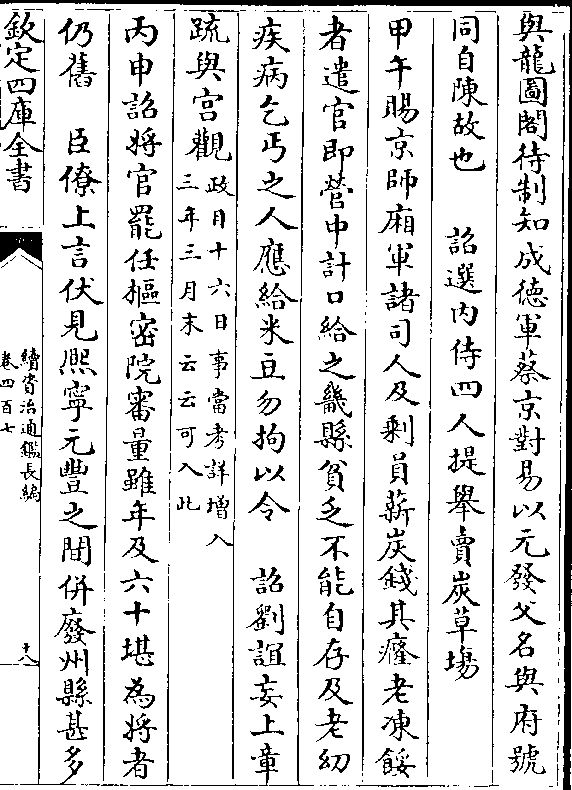 與龍圖閣待制知成德軍蔡京對易以元發父名與府號
同自陳故也　詔選内侍四人提舉賣炭草場
甲午賜京師廂軍諸司人及剩員薪炭錢其癃老凍餒
者遣官即營中計口給之畿縣貧乏不能自存及老幼
疾病乞丐之人應給米豆勿拘以令　詔劉誼妄上章
疏與宫觀政目十六日事當考詳増入
三年三月末云云可入此
丙申詔將官罷任樞密院審量雖年及六十堪為將者
仍舊　臣僚上言伏見熈寧元豐之間併廢州縣甚多
欽定四庫全書
續資治通鑑長編
卷四百七
十八